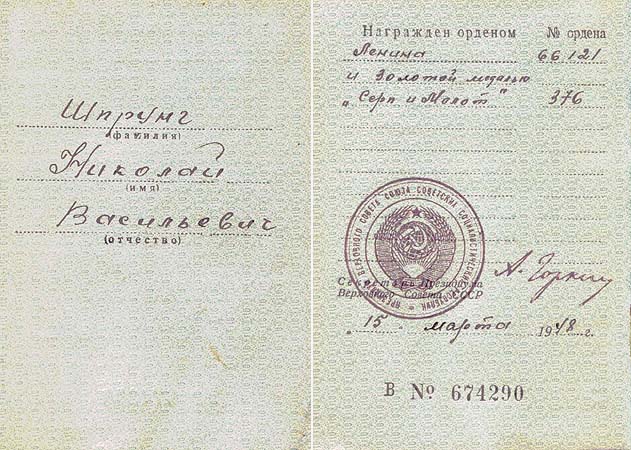 Шпрунг
(фамилия)
Николай
(имя)
Васильевич
(отчество)
Награжден орденом № ордена
Ленина 66121
и Золотой медалью
„Серп и Молот" 376
Секретарь Президиума
Верховного Совета СССР
А. Горкин
„15" марта 1948 г.
В № 674290